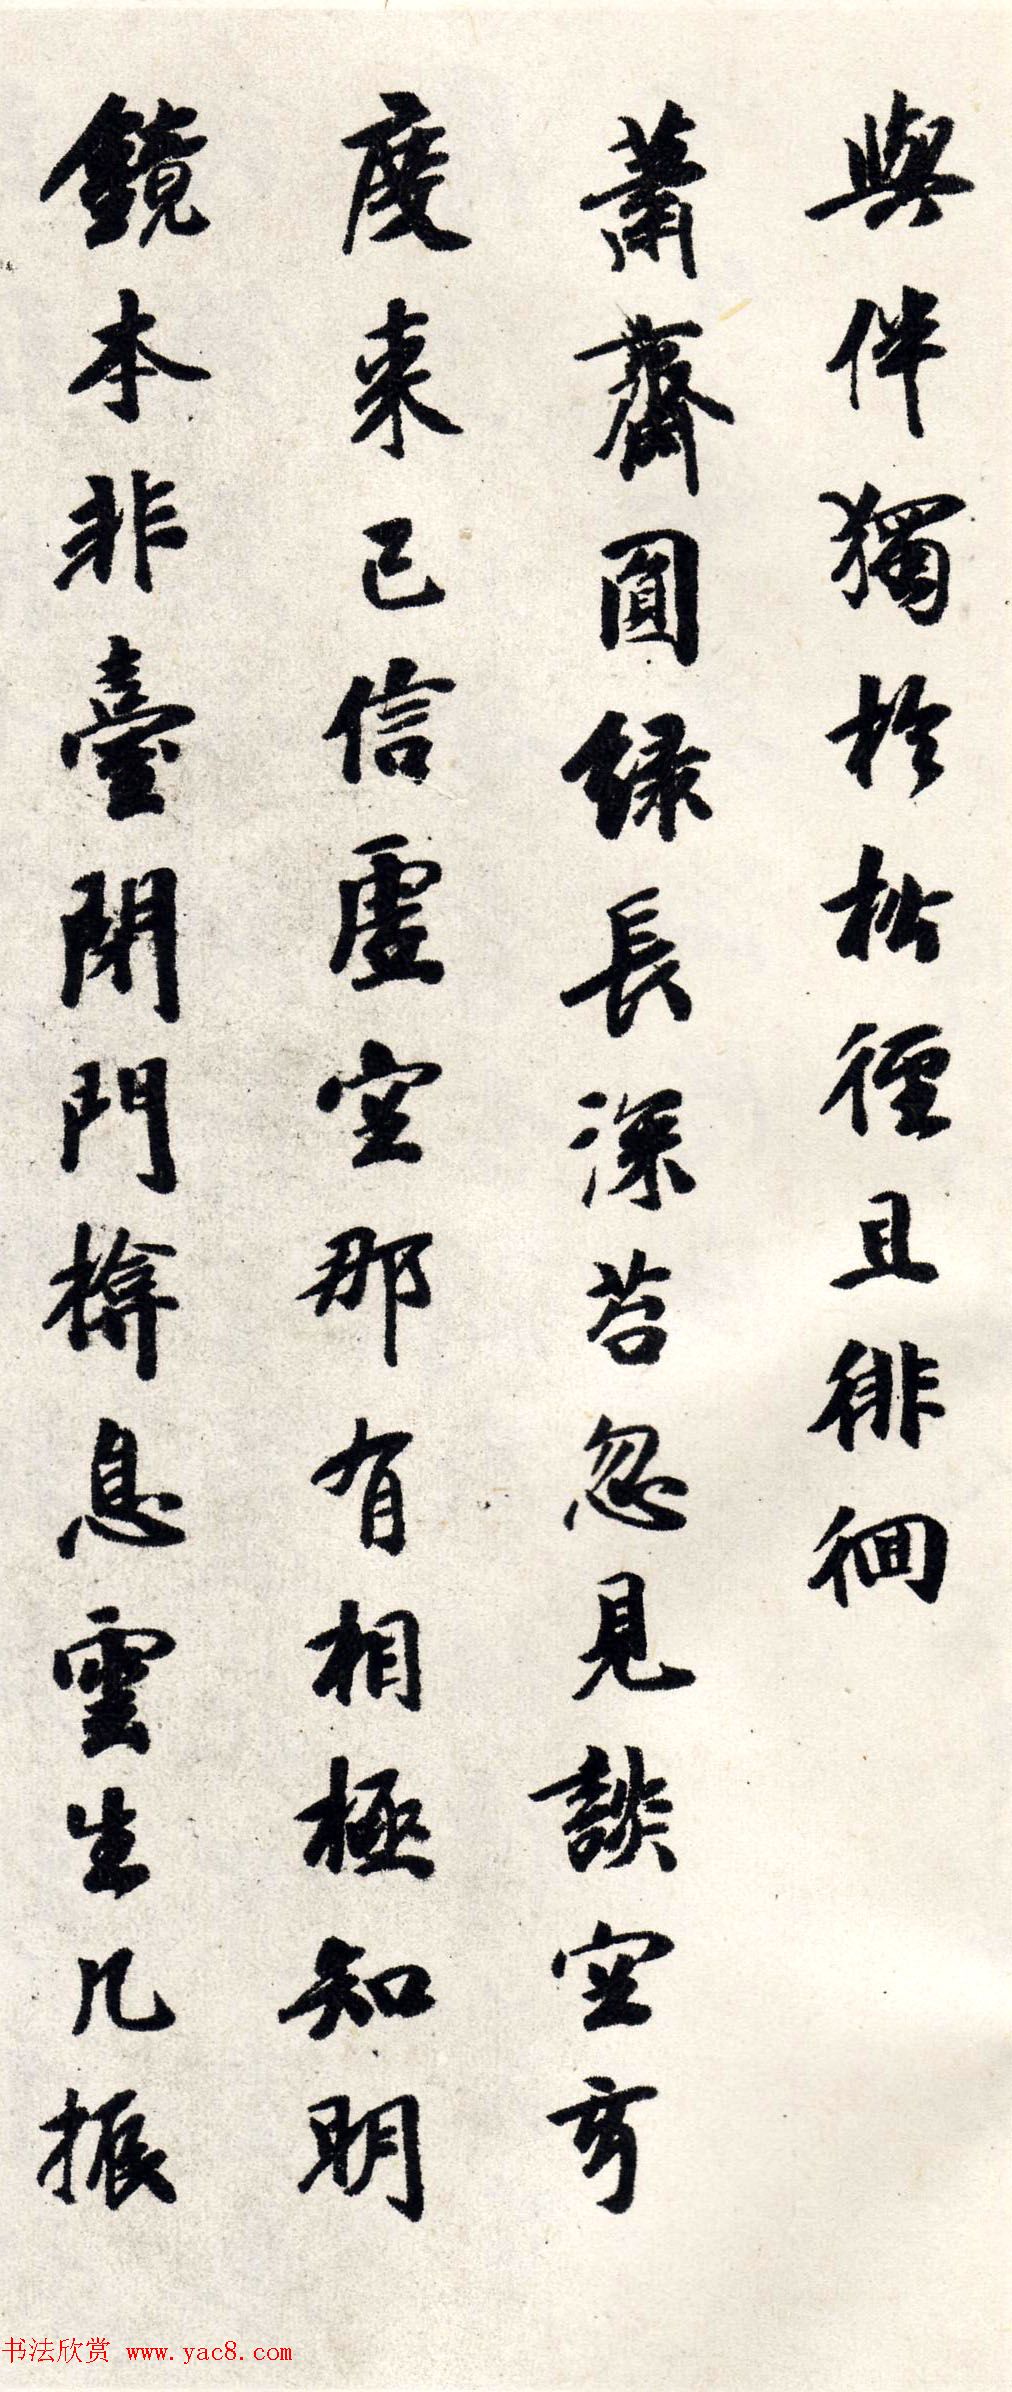 與伴獨於松徑且徘徊
蕭齋圓綠長深苔忽見談空可
度来已信虛空那有相極知明
鏡本非臺閉門榰息雲生几振
书法欣赏 www.yac8.com